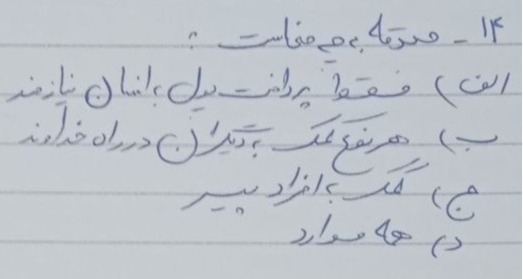 ۱۴ - صدقه به چه معناست :
الف) فقط پرداخت پول به انسان نیازمند
ب) هر نوع کمک به دیگران در راه خداوند
ج) کمک به افراد پیر
د) همه موارد